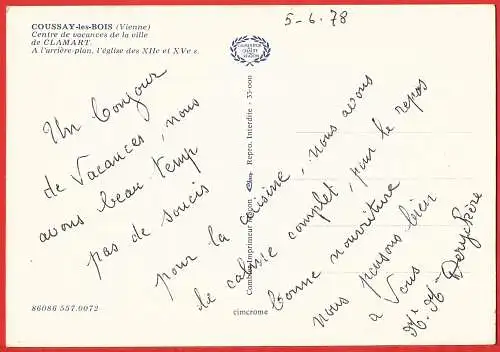 COUSSAY-les-BOIS (Vienne)
Centre de vacances de la ville
de CLAMART.
A l'arrière-plan, l'église des XIIe et XVe s.
5-6.78
Un bonjour
de Vacances, nous
avons beau temp
pas de soucis
pour la cuisine, nous avons
le calme complet, pour le repos
bonne nourriture
nous pensons bien
a Vous
Combier Imprimeur Mâcon
Repro. Interdite - 35-000
86086 557.0072
cimcrome